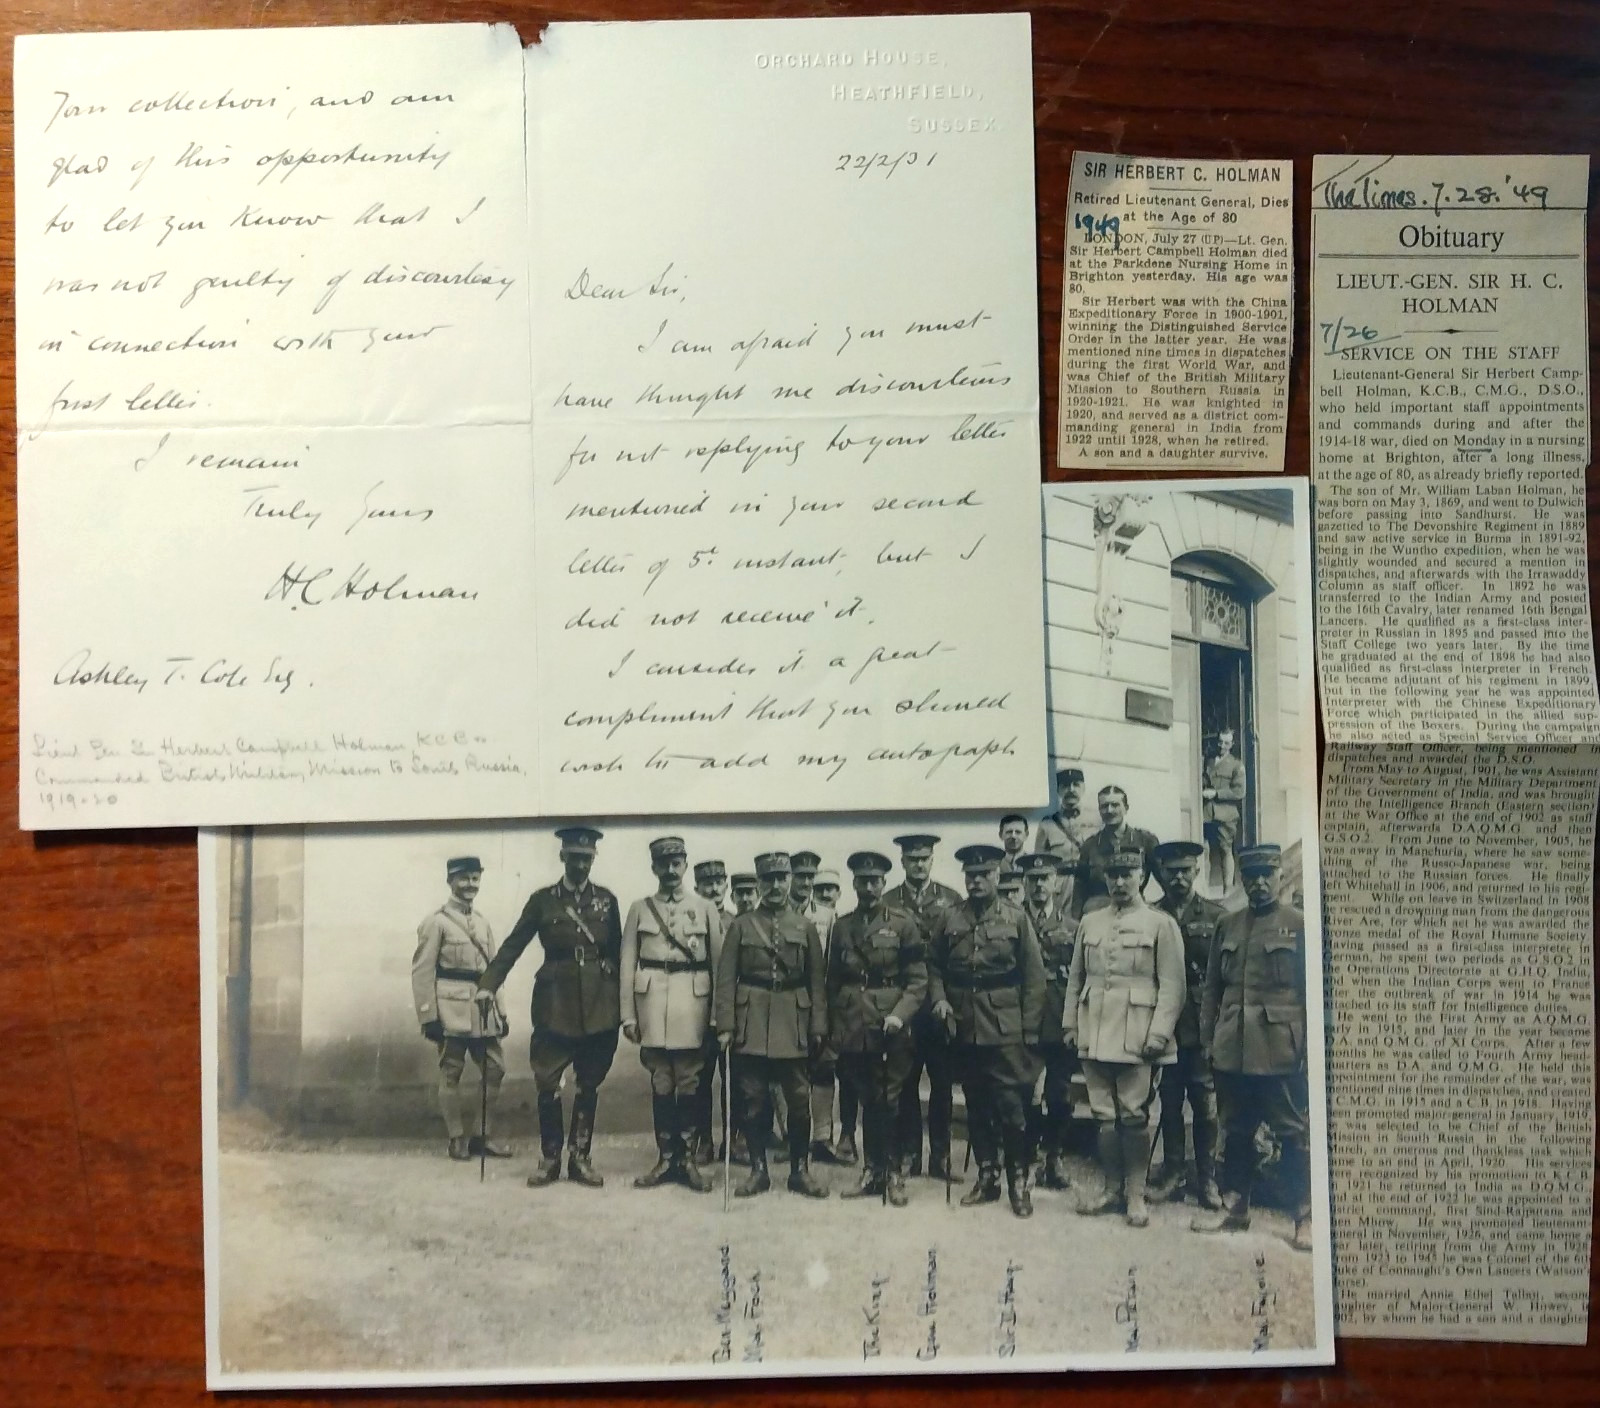 ORCHARD HOUSE,
HEATHFIELD,
SUSSEX.
22/2/31
Dear Sir,
I am afraid you must
have thought me discourteous
for not replying to your letter
mentioned in your second
letter of 5th instant, but I
did not receive it.
I consider it a great
compliment that you should
wish to add my autograph
Your collection, and am
glad of this opportunity
to let you know that I
was not guilty of discourtesy
in connection with your
first letter.
I remain
Truly Yours
H.C. Holman
Ashley T. Cole Esq.
Lieut Gen Sir Herbert Campbell Holman, KCB
Commanded British Military Mission to South Russia,
1919-20
SIR HERBERT C. HOLMAN
Retired Lieutenant General, Dies
at the Age of 80
1949
LONDON, July 27 (UP)—Lt. Gen.
Sir Herbert Campbell Holman died
at the Parkdene Nursing Home in
Brighton yesterday. His age was
80.
Sir Herbert was with the China
Expeditionary Force in 1900-1901,
winning the Distinguished Service
Order in the latter year. He was
mentioned nine times in dispatches
during the first World War, and
was Chief of the British Military
Mission to Southern Russia in
1920-1921. He was knighted in
1920, and served as a district com-
manding general in India from
1922 until 1928, when he retired.
A son and a daughter survive.
The Times. 7.28.'49
Obituary
LIEUT.-GEN. SIR H. C.
HOLMAN
7/26
SERVICE ON THE STAFF
Lieutenant-General Sir Herbert Camp-
bell Holman, K.C.B., C.M.G., D.S.O.,
who held important staff appointments
and commands during and after the
1914-18 war, died on Monday in a nursing
home at Brighton, after a long illness,
at the age of 80, as already briefly reported.
The son of Mr. William Laban Holman, he
was born on May 3, 1869, and went to Dulwich
before passing into Sandhurst. He was
gazetted to The Devonshire Regiment in 1889
and saw active service in Burma in 1891-92,
being in the Wuntho expedition, when he was
slightly wounded and secured a mention in
dispatches, and afterwards with the Irrawaddy
Column as staff officer. In 1892 he was
transferred to the Indian Army and posted
to the 16th Cavalry, later renamed 16th Bengal
Lancers. He qualified as a first-class inter-
preter in Russian in 1895 and passed into the
Staff College two years later. By the time
he graduated at the end of 1898 he had also
qualified as first-class interpreter in French.
He became adjutant of his regiment in 1899,
but in the following year he was appointed
Interpreter with the Chinese Expeditionary
Force which participated in the allied sup-
pression of the Boxers. During the campaign
he also acted as Special Service Officer and
Railway Staff Officer, being mentioned in
dispatches and awarded the D.S.O.
From May to August, 1901, he was Assistant
Military Secretary in the Military Department
of the Government of India, and was brought
into the Intelligence Branch (Eastern section)
at the War Office at the end of 1902 as staff
captain, afterwards D.A.Q.M.G. and then
G.S.O.2. From June to November, 1905, he
was away in Manchuria, where he saw some-
thing of the Russo-Japanese war, being
attached to the Russian forces. He finally
left Whitehall in 1906, and returned to his regi-
ment. While on leave in Switzerland in 1908
he rescued a drowning man from the dangerous
River Are, for which act he was awarded the
bronze medal of the Royal Humane Society.
Having passed as a first-class interpreter in
German, he spent two periods as G.S.O.2 in
the Operations Directorate at G.H.Q. India,
and when the Indian Corps went to France
after the outbreak of war in 1914 he was
attached to its staff for Intelligence duties.
He went to the First Army as A.Q.M.G.
early in 1915, and later in the year became
D.A. and Q.M.G. of XI Corps. After a few
months he was called to Fourth Army head-
quarters as D.A. and Q.M.G. He held this
appointment for the remainder of the war, was
mentioned nine times in dispatches, and created
C.M.G. in 1915 and a C.B. in 1918. Having
been promoted major-general in January, 1919,
he was selected to be Chief of the British
Mission in South Russia in the following
March, an onerous and thankless task which
came to an end in April, 1920. His services
were recognized by his promotion to K.C.B.
In 1921 he returned to India as D.Q.M.G.,
and at the end of 1922 he was appointed to a
district command, first Sind-Rajputana and
then Mhow. He was promoted lieutenant-
general in November, 1926, and came home a
year later, retiring from the Army in 1928.
From 1923 to 1945 he was Colonel of the 6th
Duke of Connaught's Own Lancers (Watson's
Horse).
He married Annie Ethel Talbot, second
daughter of Major-General W. Howey, in
1902, by whom he had a son and a daughter
Gen Weygand
Mar Foch
The King
Gen Holman
Sir D Haig
Mar Petain
Mar Fayolle